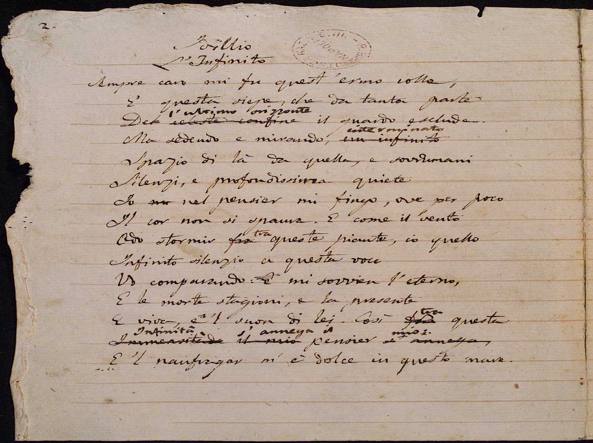 2.
Idillio
L'Infinito
Sempre caro mi fu quest'ermo colle,
E questa siepe, che da tanta parte
l'ultimo orizzonte
Del celeste confine il guardo esclude.
interminato
Ma sedendo e mirando, un infinito
Spazio di là da quella, e sovrumani
Silenzi, e profondissima quiete
Io nel pensier mi fingo, ove per poco
Il cor non si spaura. E come il vento
tra
Odo stormir fra queste piante, io quello
Infinito silenzio a questa voce
Vo comparando. E mi sovvien l'eterno,
E le morte stagioni, e la presente
tra
E viva, e 'l suon di lei. Così questa
Infinità s'annega il mio:
Immensitade il mio pensier s'annega,
E 'l naufragar m'è dolce in questo mare.